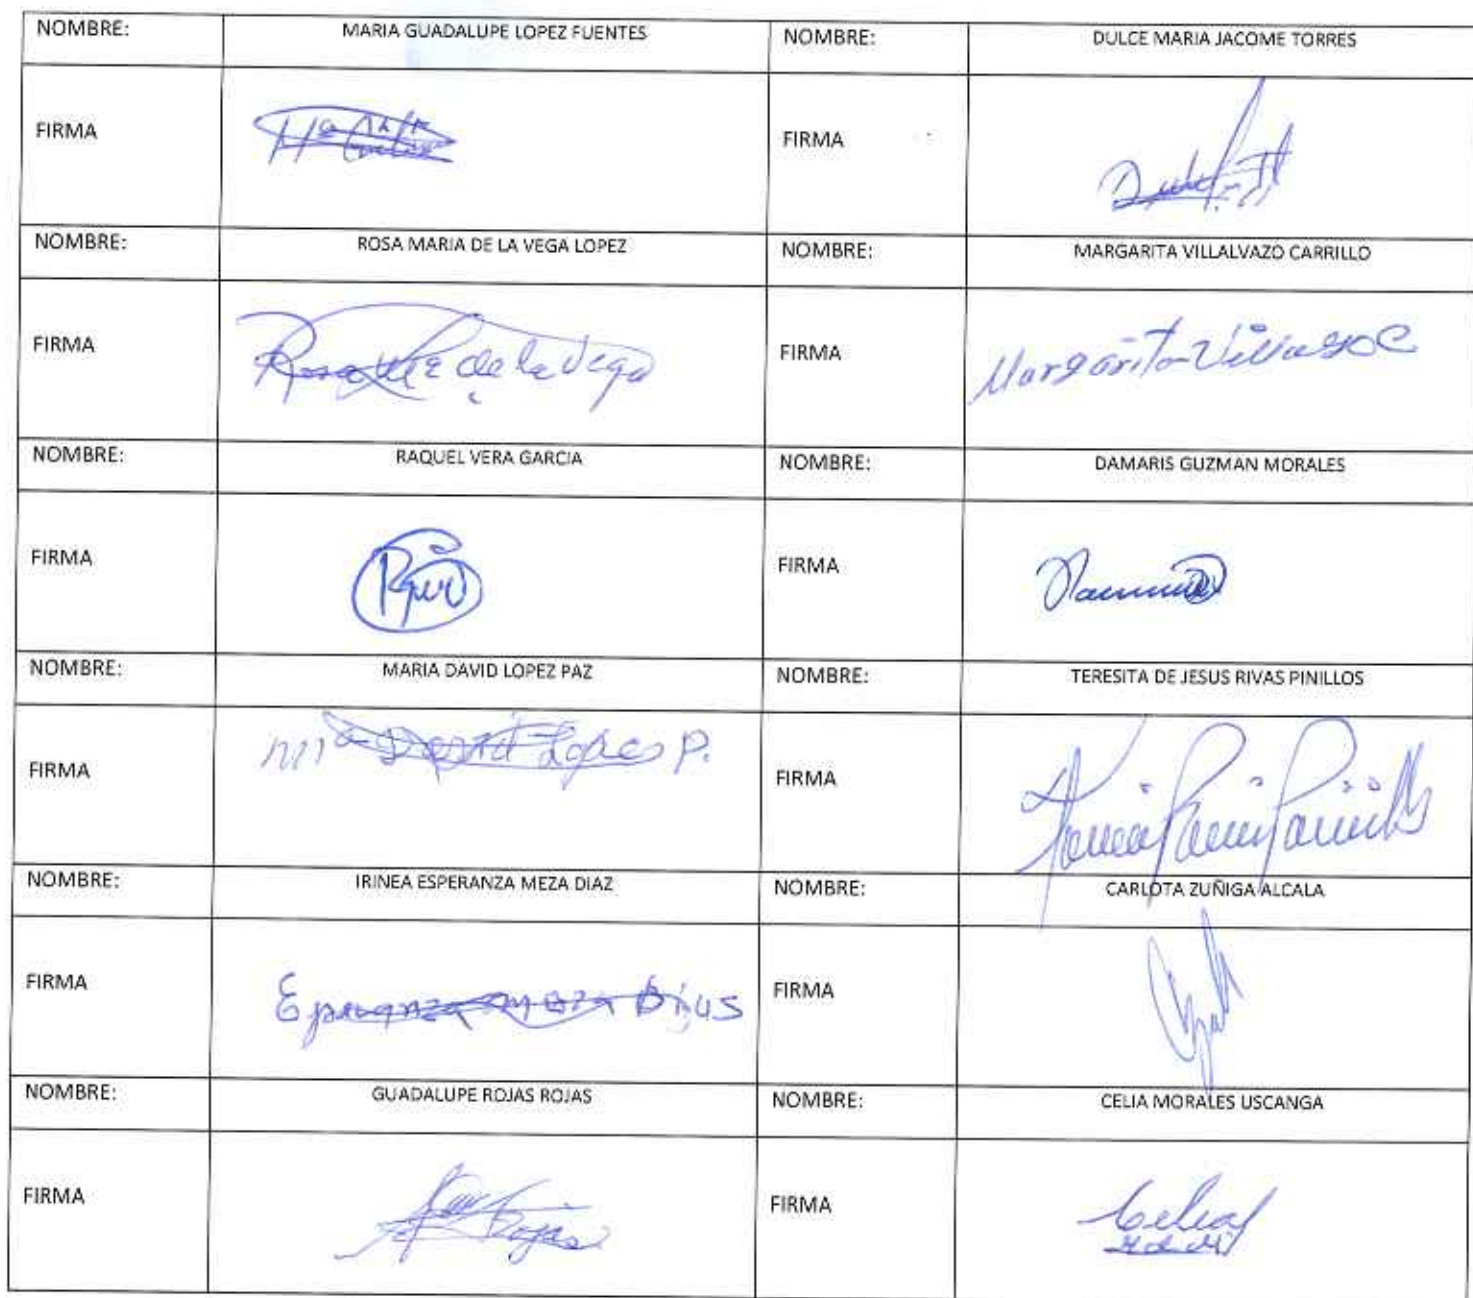 NOMBRE: MARIA GUADALUPE LOPEZ FUENTES NOMBRE: DULCE MARIA JACOME TORRES
FIRMA FIRMA
NOMBRE: ROSA MARIA DE LA VEGA LOPEZ NOMBRE: MARGARITA VILLALVAZO CARRILLO
FIRMA Rosa de la Vega FIRMA Margarita
NOMBRE: RAQUEL VERA GARCIA NOMBRE: DAMARIS GUZMAN MORALES
FIRMA FIRMA
NOMBRE: MARIA DAVID LOPEZ PAZ NOMBRE: TERESITA DE JESUS RIVAS PINILLOS
FIRMA David Lopes P. FIRMA
NOMBRE: IRINEA ESPERANZA MEZA DIAZ NOMBRE: CARLOTA ZUÑIGA ALCALA
FIRMA FIRMA
NOMBRE: GUADALUPE ROJAS ROJAS NOMBRE: CELIA MORALES USCANGA
FIRMA Rojas FIRMA Celia